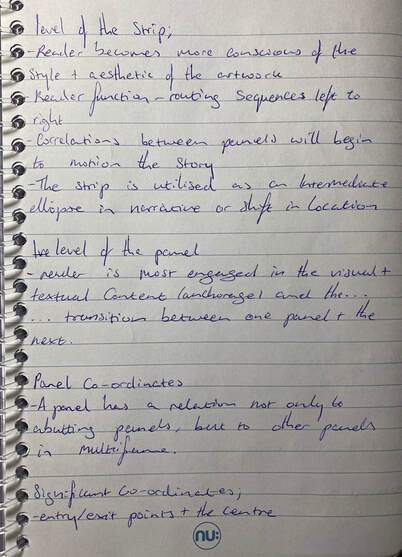 level of the Strip;
- Reader becomes more conscious of the
style + aesthetic of the artwork
- Reader function - routing sequences left to
right
- Correlations between panels will begin
to motion the Story
- The strip is utilised as an Intermediate
ellipse in narrative or shift in location
The level of the panel
- reader is most engaged in the visual +
textual content (anchorage) and the...
... transition between one panel + the
next.
Panel Co-ordinates
- A panel has a relation not only to
abutting panels, but to other panels
in multiframe.
Significant Co-ordinates;
- entry/exit points + the centre
nu: